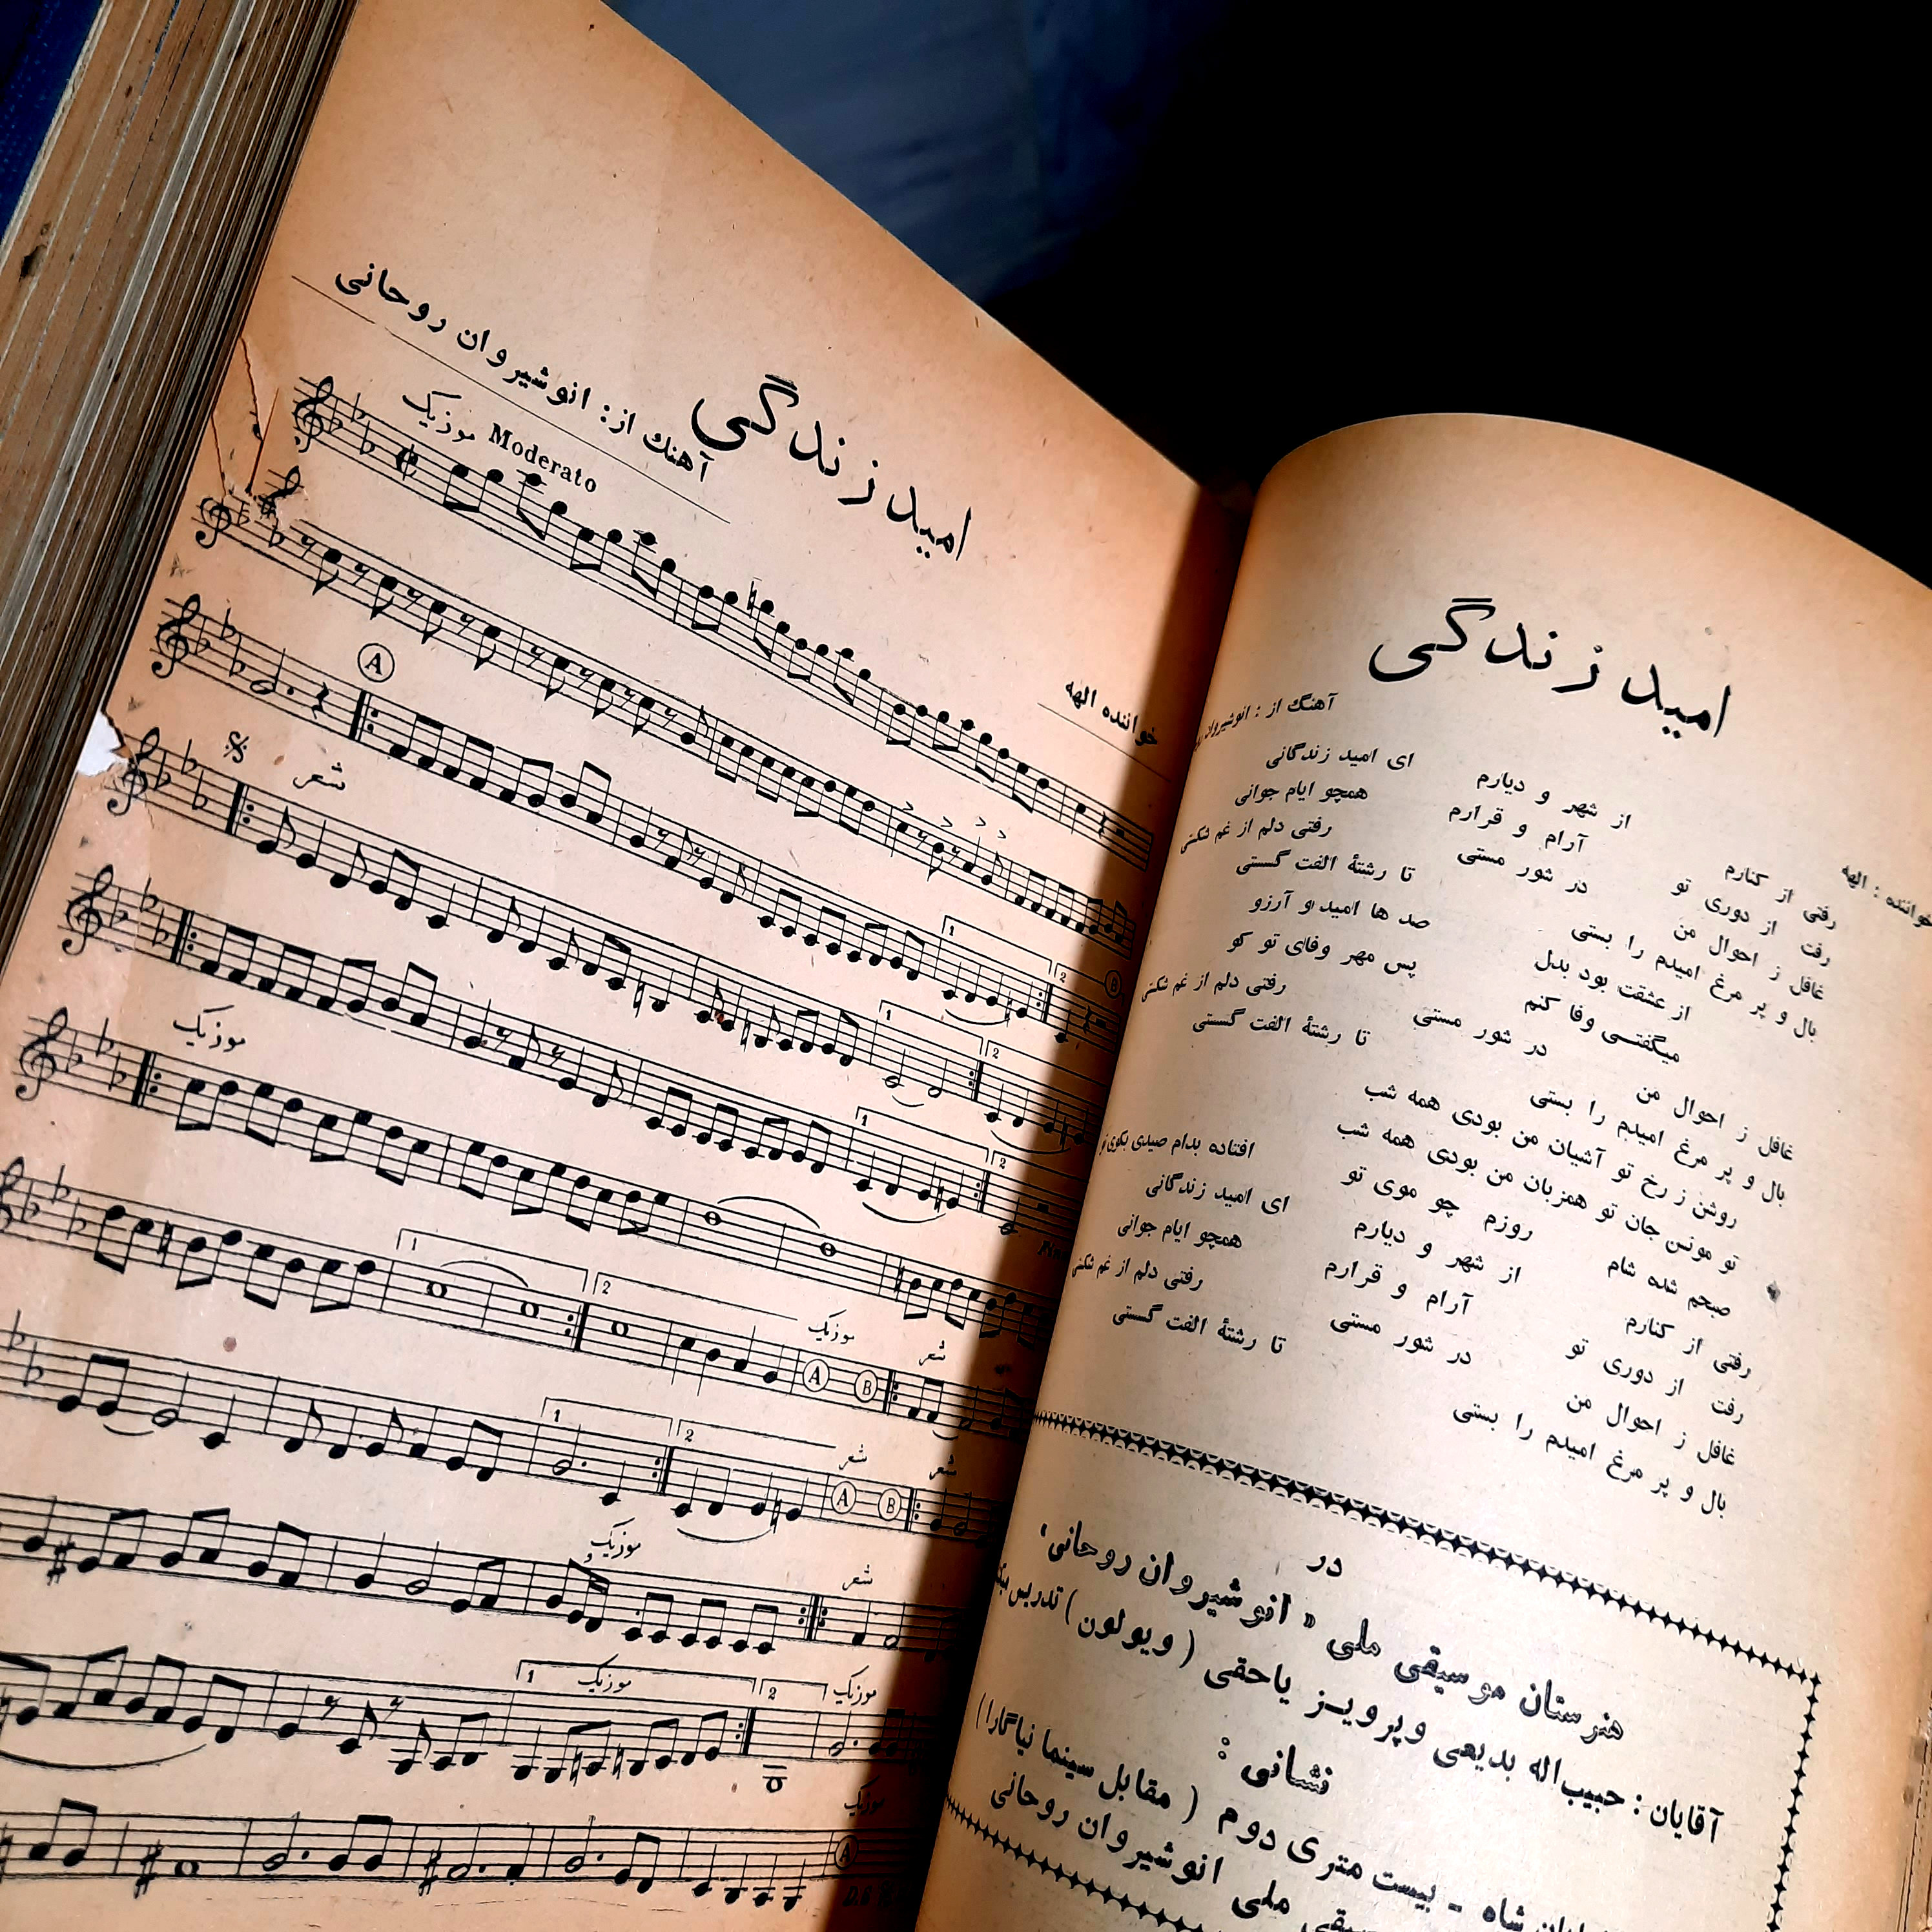 امید زندگی
آهنك از: انوشیروان روحانی
خواننده الهه
Moderato موزیک
A
1 2
B
شعر
1 2
1 2
موزیک
1 2
موزیک
A B
شعر
1 2
شعر
A B
شعر
موزیک
شعر
1 موزیک
2 موزیک
موزیک
A
امید زندگی
خواننده : الهه
آهنگ از : انوشیروان
رفتی از کنارم از شهر و دیارم ای امید زندگانی
رفت از دوری تو آرام و قرارم همچو ایام جوانی
غافل ز احوال من در شور مستی رفتی دلم از غم شکستی
بال و پر مرغ امیدم را بستی تا رشتهٔ الفت گسستی
از عشقت بود بدل صد ها امید و آرزو
میگفتی وفا کنم پس مهر وفای تو کو
غافل ز احوال من در شور مستی رفتی دلم از غم شکستی
بال و پر مرغ امیدم را بستی تا رشتهٔ الفت گسستی
روشن ز رخ تو آشیان من بودی همه شب
تو مونس جان تو همزبان من بودی همه شب
صبحم شده شام روزم چو موی تو افتاده بدام صیدی بکوی تو
رفتی از کنارم از شهر و دیارم ای امید زندگانی
رفت از دوری تو آرام و قرارم همچو ایام جوانی
غافل ز احوال من در شور مستی رفتی دلم از غم شکستی
بال و پر مرغ امیدم را بستی تا رشتهٔ الفت گسستی
در
هنرستان موسیقی ملی « انوشیروان روحانی»
آقایان : حبیب‌اله بدیعی و پرویز یاحقی ( ویولون ) تدریس
نشانی :
شاه - بیست متری دوم ( مقابل سینما نیاگارا )
ملی انوشیروان روحانی